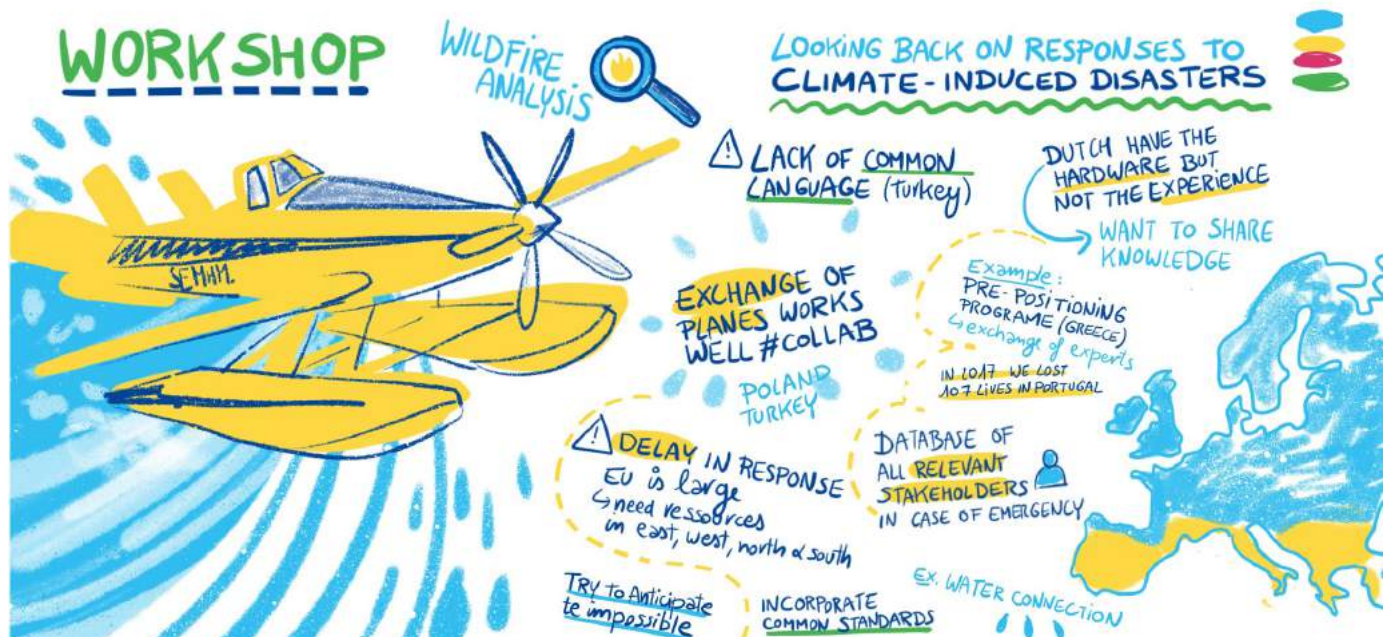 WORKSHOP
WILDFIRE
ANALYSIS
LOOKING BACK ON RESPONSES TO
CLIMATE-INDUCED DISASTERS
LACK OF COMMON
LANGUAGE (Turkey)
DUTCH HAVE THE
HARDWARE BUT
NOT THE EXPERIENCE
WANT TO SHARE
KNOWLEDGE
EXCHANGE OF
PLANES WORKS
WELL #COLLAB
POLAND
TURKEY
Example:
PRE-POSITIONING
PROGRAME (GREECE)
↳ exchange of experts
IN 2017 WE LOST
107 LIVES IN PORTUGAL
DELAY IN RESPONSE
EU is large
↳ need ressources
in east, west, north & south
DATABASE OF
ALL RELEVANT
STAKEHOLDERS
IN CASE OF EMERGENCY
TRY TO Anticipate
te impossible
INCORPORATE
COMMON STANDARDS
EX. WATER CONNECTION